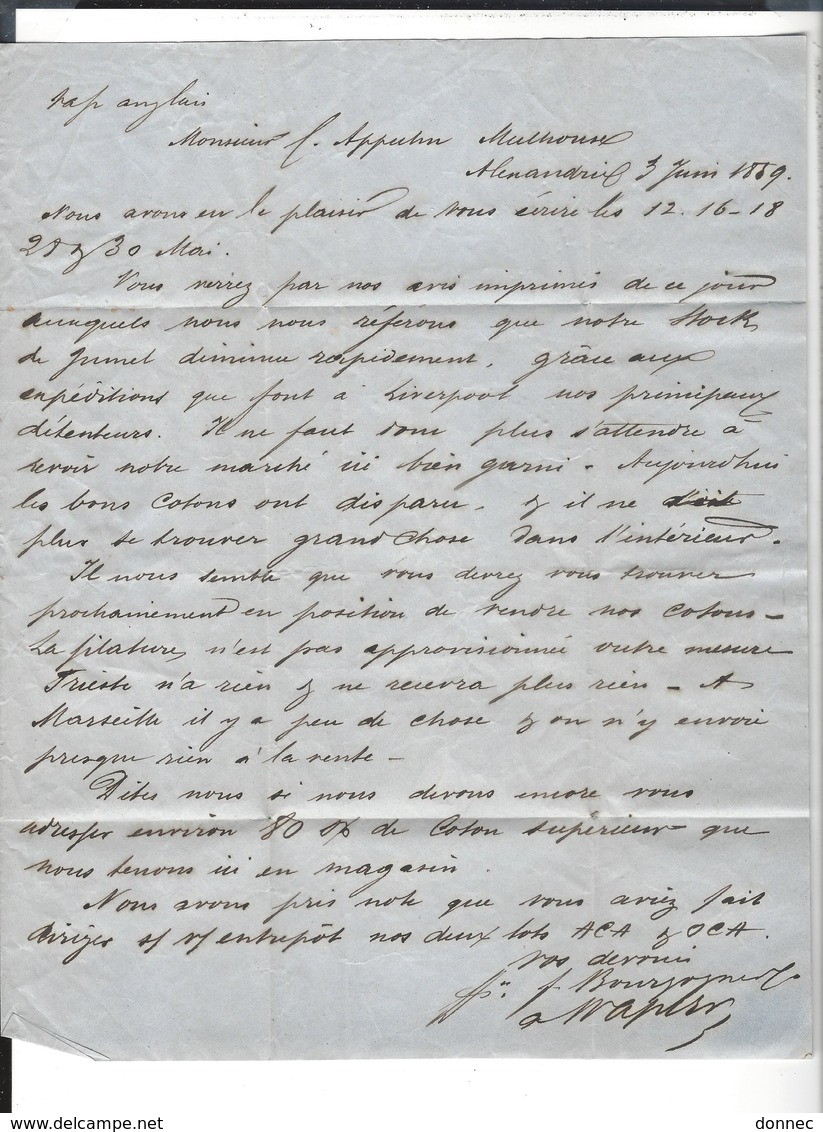 Vap anglais
Monsieur Mulhouse
Alexandrie 3 Juin 1859.
Nous avons eu le plaisir de vous écrire les 12. 16 - 18
& 30 Mai.
Vous verrez par nos avis imprimés de ce jour
auxquels nous nous référons que notre Stock
de Jumel diminue rapidement, grâce aux
expéditions que font à Liverpool nos principaux
détenteurs. Il ne faut donc plus s'attendre à
revoir notre marché ici bien garni - Aujourdhui
les bons Cotons ont disparu, & il ne doit
plus se trouver grand chose dans l'intérieur.
Il nous semble que vous devrez vous trouver
prochainement en position de vendre nos cotons -
La filature, n'est pas approvisionnée outre mesure
Trieste n'a rien & ne recevra plus rien - A
Marseille il y a peu de chose & on n'y envoie
presque rien à la vente -
Dites nous si nous devons encore vous
adresser environ 80 de Coton supérieur que
nous tenons ici en magasin.
Nous avons pris note que vous aviez fait
diriger s/ v/ entrepôt nos deux lots ACA & OCA.
Vos dévoués
Bourgogne
donnec